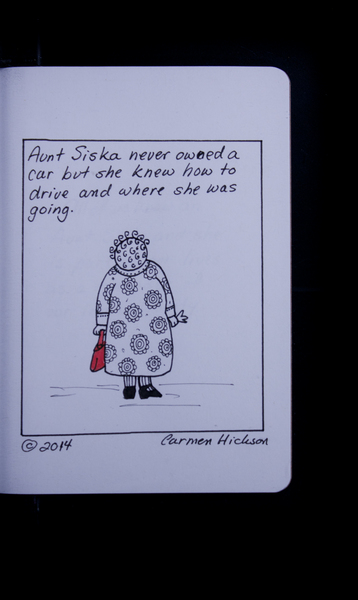 Aunt Siska never owned a
car but she knew how to
drive and where she was
going.
© 2014 Carmen Hickson